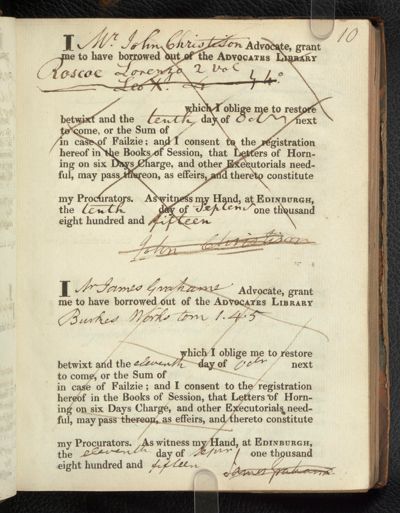 10
I Mr. John Christison Advocate, grant
me to have borrowed out of the ADVOCATES LIBRARY
Roscoe Lorenzo 2 vol
Leo Xth 4 4o
which I oblige me to restore
betwixt and the tenth day of Octr next
to come, or the Sum of
in case of Failzie; and I consent to the registration
hereof in the Books of Session, that Letters of Horn-
ing on six Days Charge, and other Executorials need-
ful, may pass thereon, as effeirs, and thereto constitute
my Procurators. As witness my Hand, at EDINBURGH,
the tenth day of Septem one thousand
eight hundred and fifteen
John Christison
I Mr James Grahame Advocate, grant
me to have borrowed out of the ADVOCATES LIBRARY
Burkes Works tom 1.4.5
which I oblige me to restore
betwixt and the eleventh day of Octr next
to come, or the Sum of
in case of Failzie; and I consent to the registration
hereof in the Books of Session, that Letters of Horn-
ing on six Days Charge, and other Executorials need-
ful, may pass thereon, as effeirs, and thereto constitute
my Procurators. As witness my Hand, at EDINBURGH,
the eleventh day of Sepr one thousand
eight hundred and fifteen
James Grahame